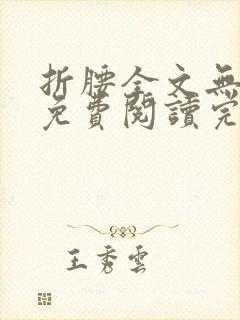 折腰全文無
免費閱讀完
王秀雲